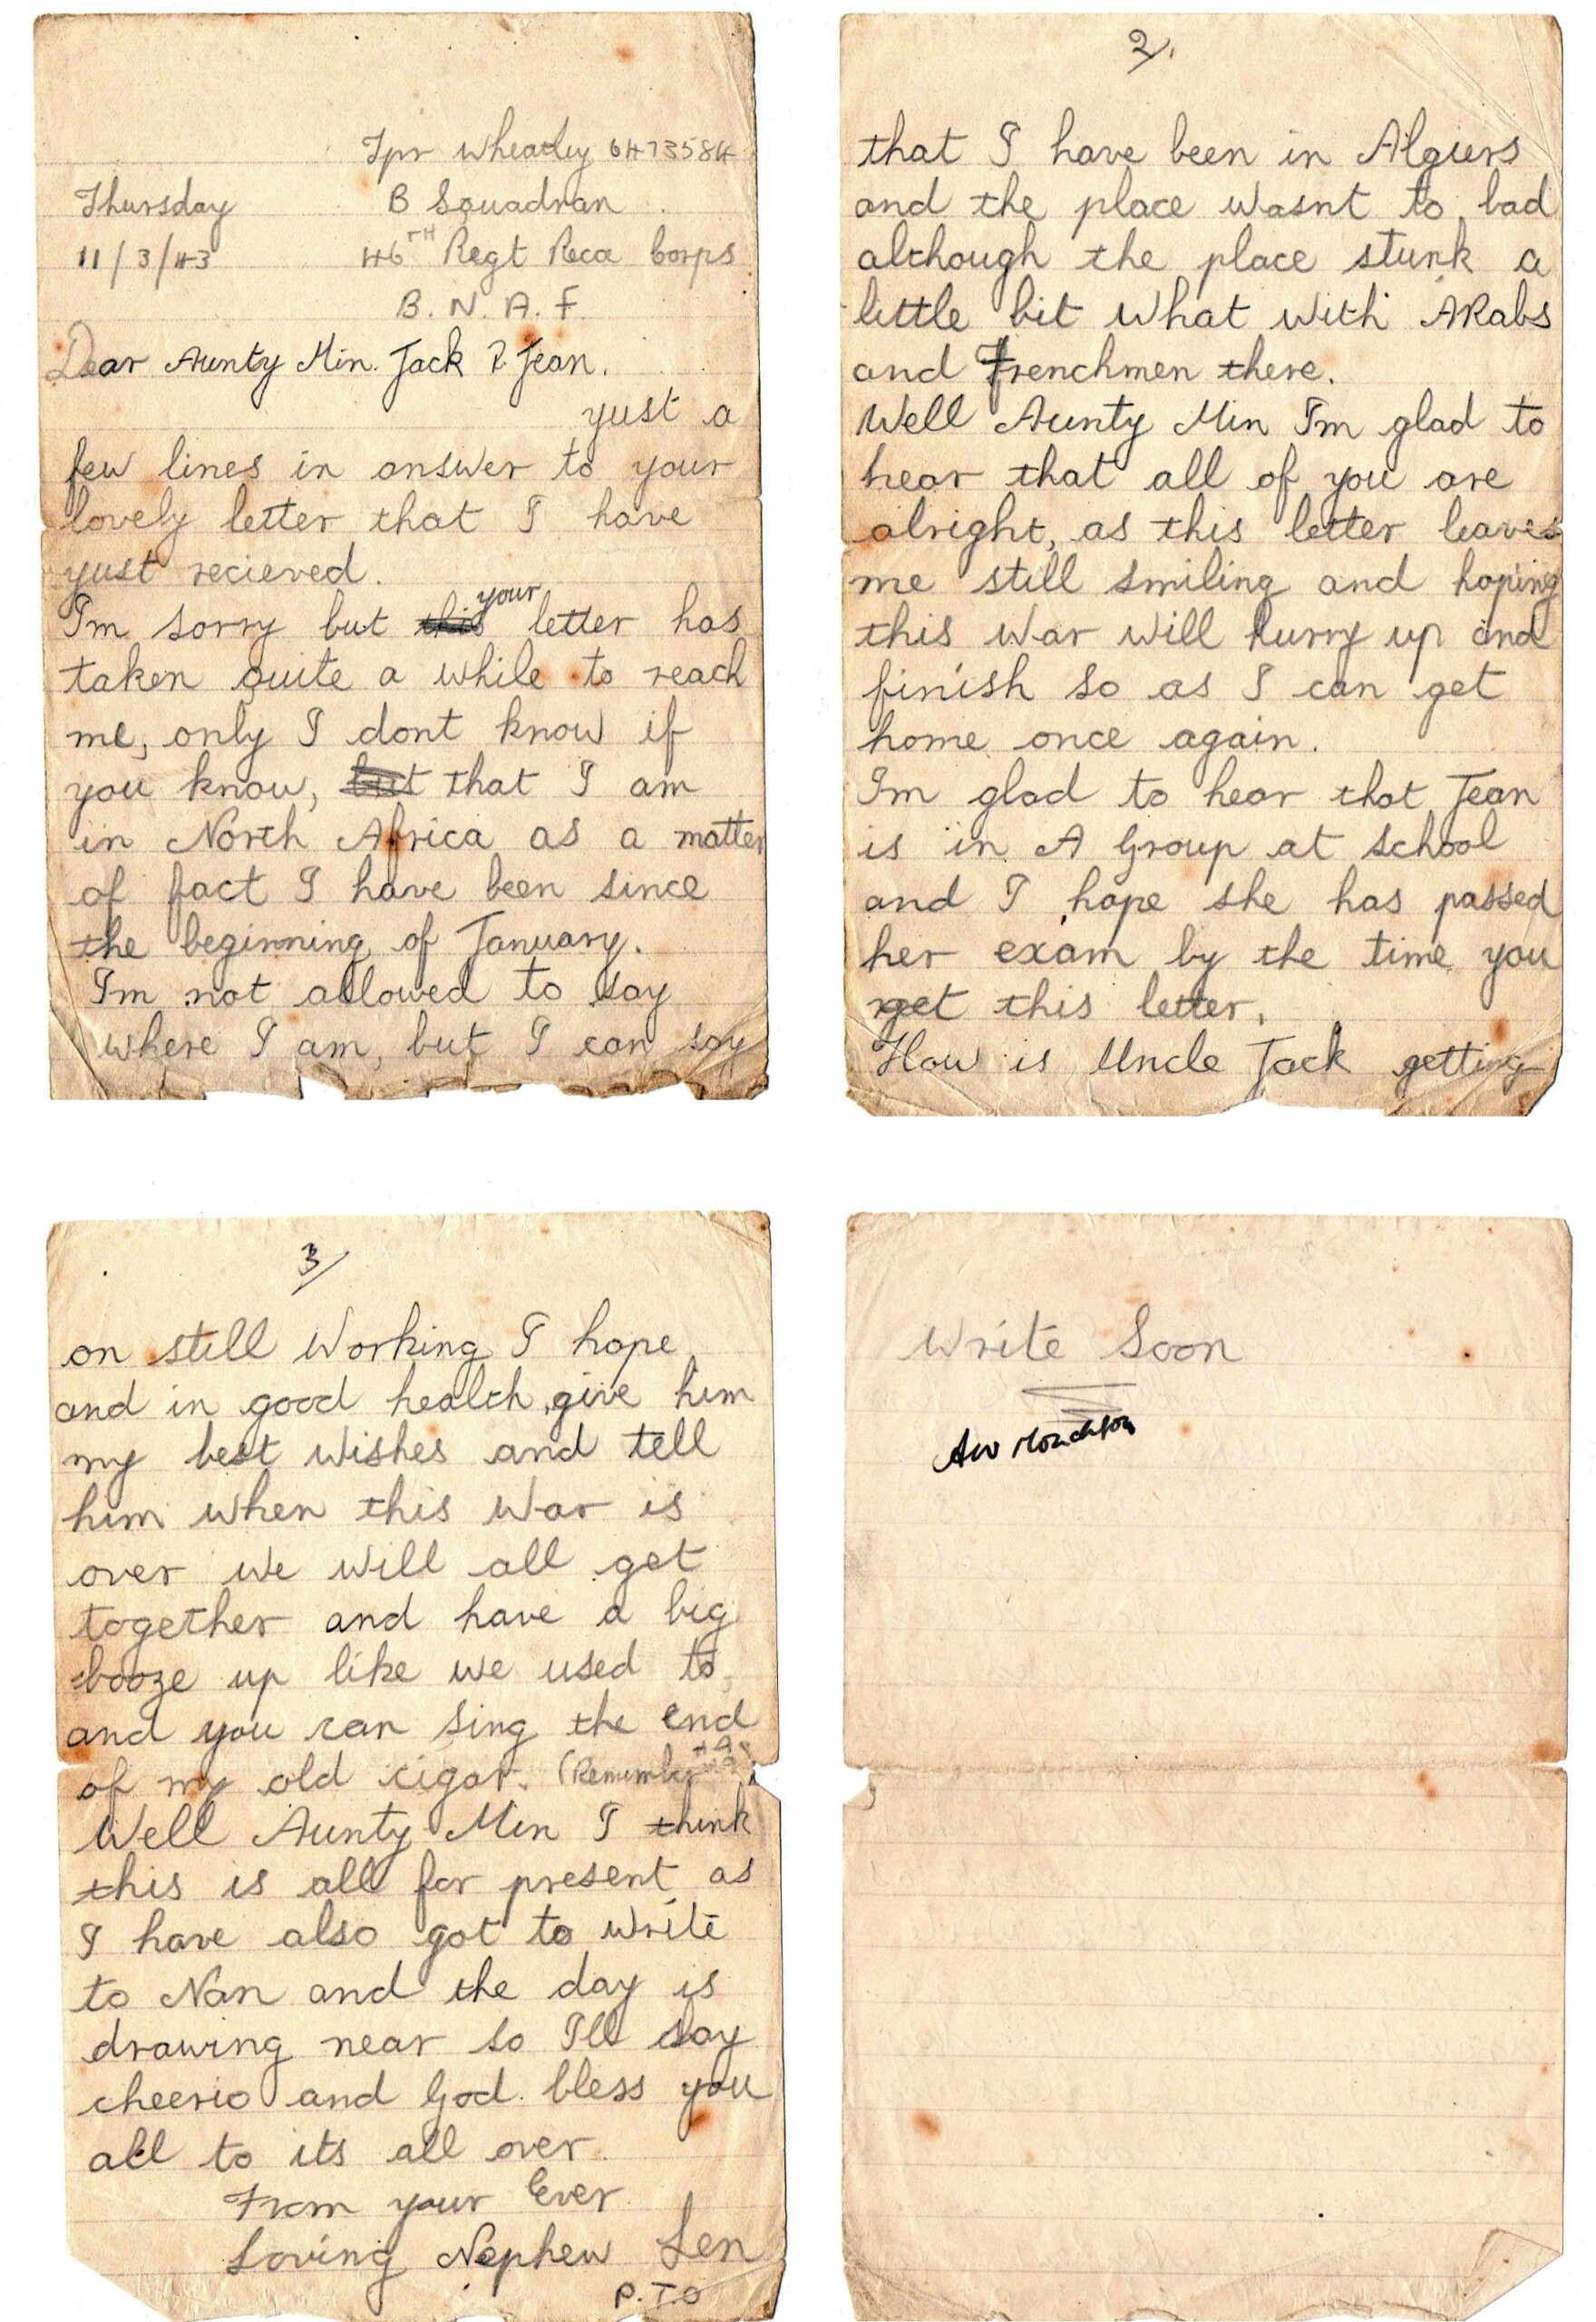 Tpr Wheatley 6473584
Thursday B Squadran
11/3/43 46TH Regt Rece Corps
B. N. A. F.
Dear Aunty Min. Jack & Jean.
yust a
few lines in answer to your
lovely letter that I have
yust recieved.
I'm sorry but this your letter has
taken quite a while to reach
me, only I dont know if
you know, but that I am
in North Africa as a matter
of fact I have been since
the beginning of January.
I'm not allowed to say
where I am, but I can say
2/.
that I have been in Algiers
and the place wasnt to bad
although the place stunk a
little bit what with ARabs
and Frenchmen there.
Well Aunty Min I'm glad to
hear that all of you are
alright, as this letter leaves
me still smiling and hoping
this war will hurry up and
finish so as I can get
home once again.
I'm glad to hear that Jean
is in A Group at school
and I hope she has passed
her exam by the time you
get this letter.
How is Uncle Jack getting
3/
on still working I hope
and in good health, give him
my best wishes and tell
him when this war is
over we will all get
together and have a big
booze up like we used to
and you can sing the end
of my old cigar. (Remember
Well Aunty Min I think
this is all for present as
I have also got to write
to Nan and the day is
drawing near so I'll say
cheerio and God bless you
all to its all over.
From your Ever
Loving Nephew Len
P.T.O
Write Soon